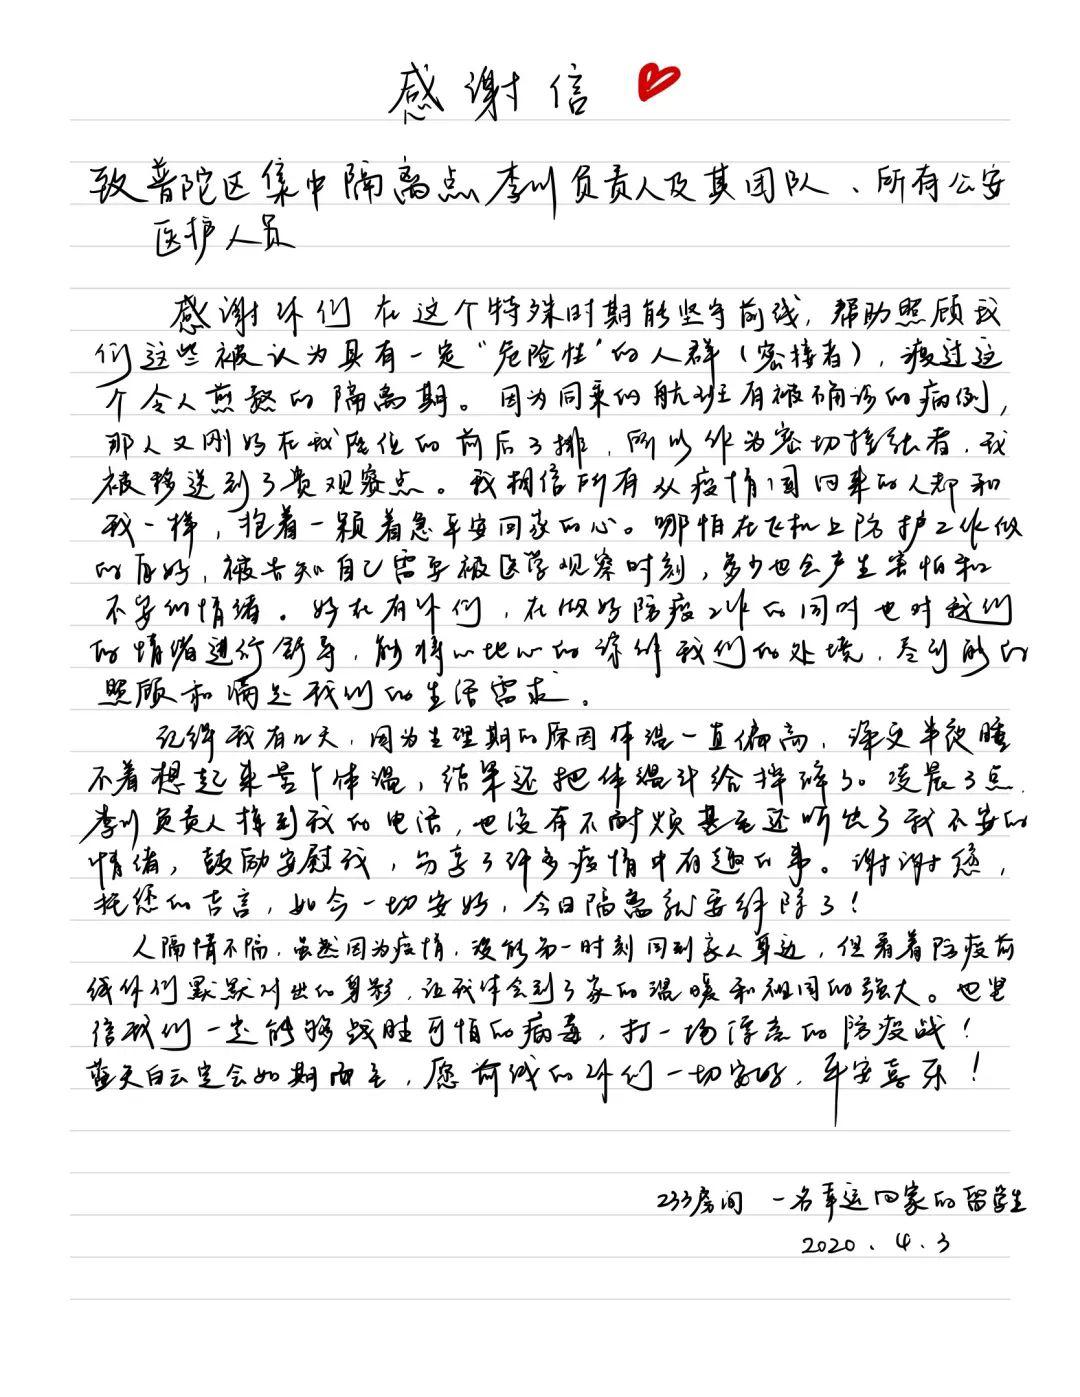 感谢信
致普陀区集中隔离点李川负责人及其团队、所有公安
医护人员
感谢你们在这个特殊时期能坚守前线，帮助照顾我
们这些被认为具有一定“危险性”的人群（密接者），渡过这
个令人煎熬的隔离期。因为同乘的航班有被确诊的病例，
那人又刚好在我座位的前后3排，所以作为密切接触者，我
被移送到了贵观察点。我相信所有从疫情国回来的人都和
我一样，抱着一颗着急平安回家的心。哪怕在飞机上防护工作做
的再好，被告知自己需要被医学观察时刻，多少也会产生害怕和
不安的情绪。好在有你们，在做好防疫工作的同时也对我们
的情绪进行舒导，能将心比心的谅解我们的处境，尽可能的
照顾和满足我们的生活需求。
记得我有几天，因为生理期的原因体温一直偏高，深夜半夜睡
不着想起来量个体温，结果还把体温计给摔碎了。凌晨3点，
李川负责人接到我的电话，也没有不耐烦甚至还听出了我不安的
情绪，鼓励安慰我，分享了许多疫情中有趣的事。谢谢您，
托您的吉言，如今一切安好，今日隔离就要解除了！
人隔情不隔，虽然因为疫情，没能第一时刻回到家人身边，但看着防疫前
线你们默默付出的身影，让我体会到了家的温暖和祖国的强大。也坚
信我们一定能够战胜可怕的病毒，打一场漂亮的防疫战！
蓝天白云定会如期而至，愿前线的你们一切安好，平安喜乐！
233房间 一名幸运回家的留学生
2020.4.3